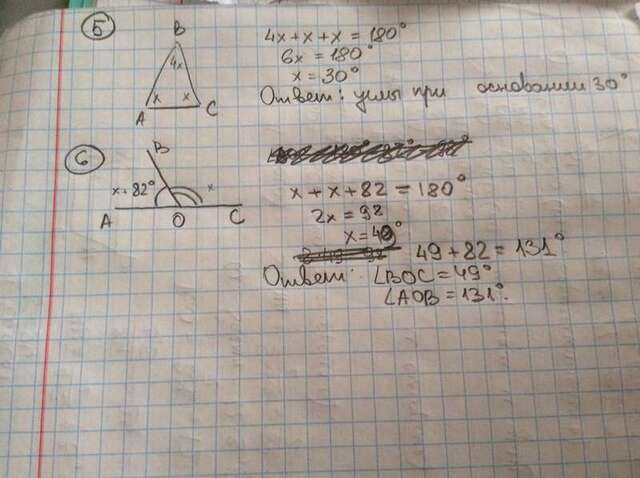 5
B
4x
x x
A C
4x + x + x = 180°
6x = 180°
x = 30°
Ответ: углы при основании 30°
6
B
x + 82° x
A O C
x + x + 82 = 180°
2x = 92
x = 49°
49 + 82 = 131°
Ответ: ∠BOC = 49°
∠AOB = 131°.